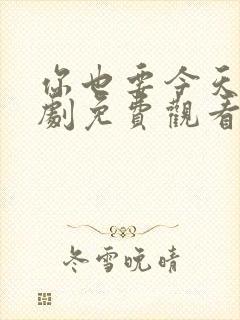 你也要今天
劇免費觀看
冬雪晚晴